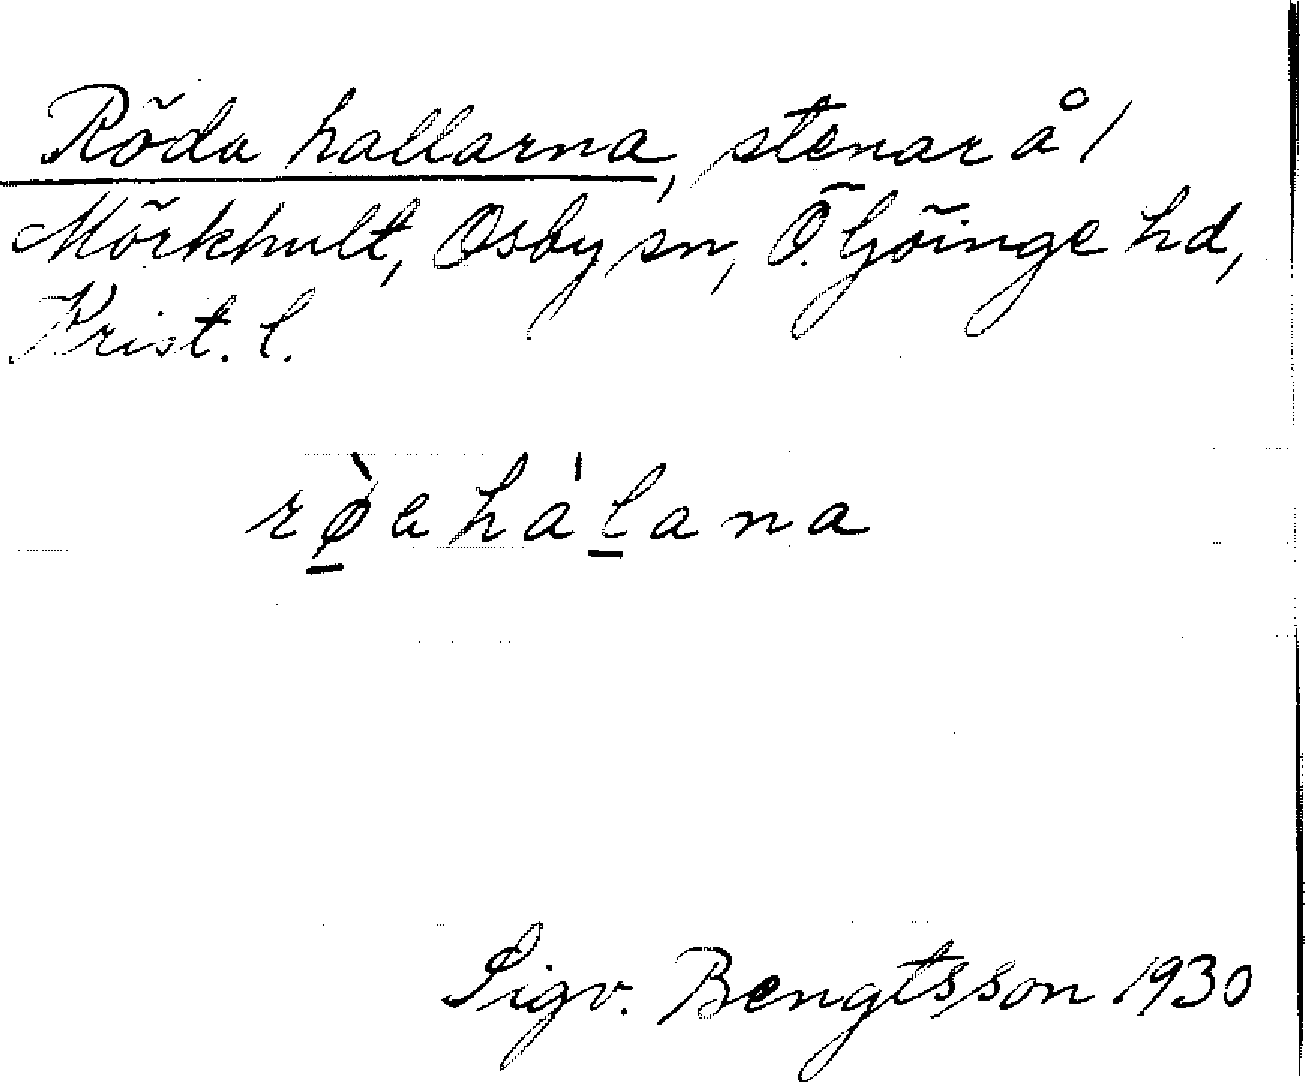 Röda hallarna, stenar å /
Mörkhult, Osby sn, Ö. Göinge hd,
Krist. l.
rø̀a há̱lana
Sigv. Bengtsson 1930